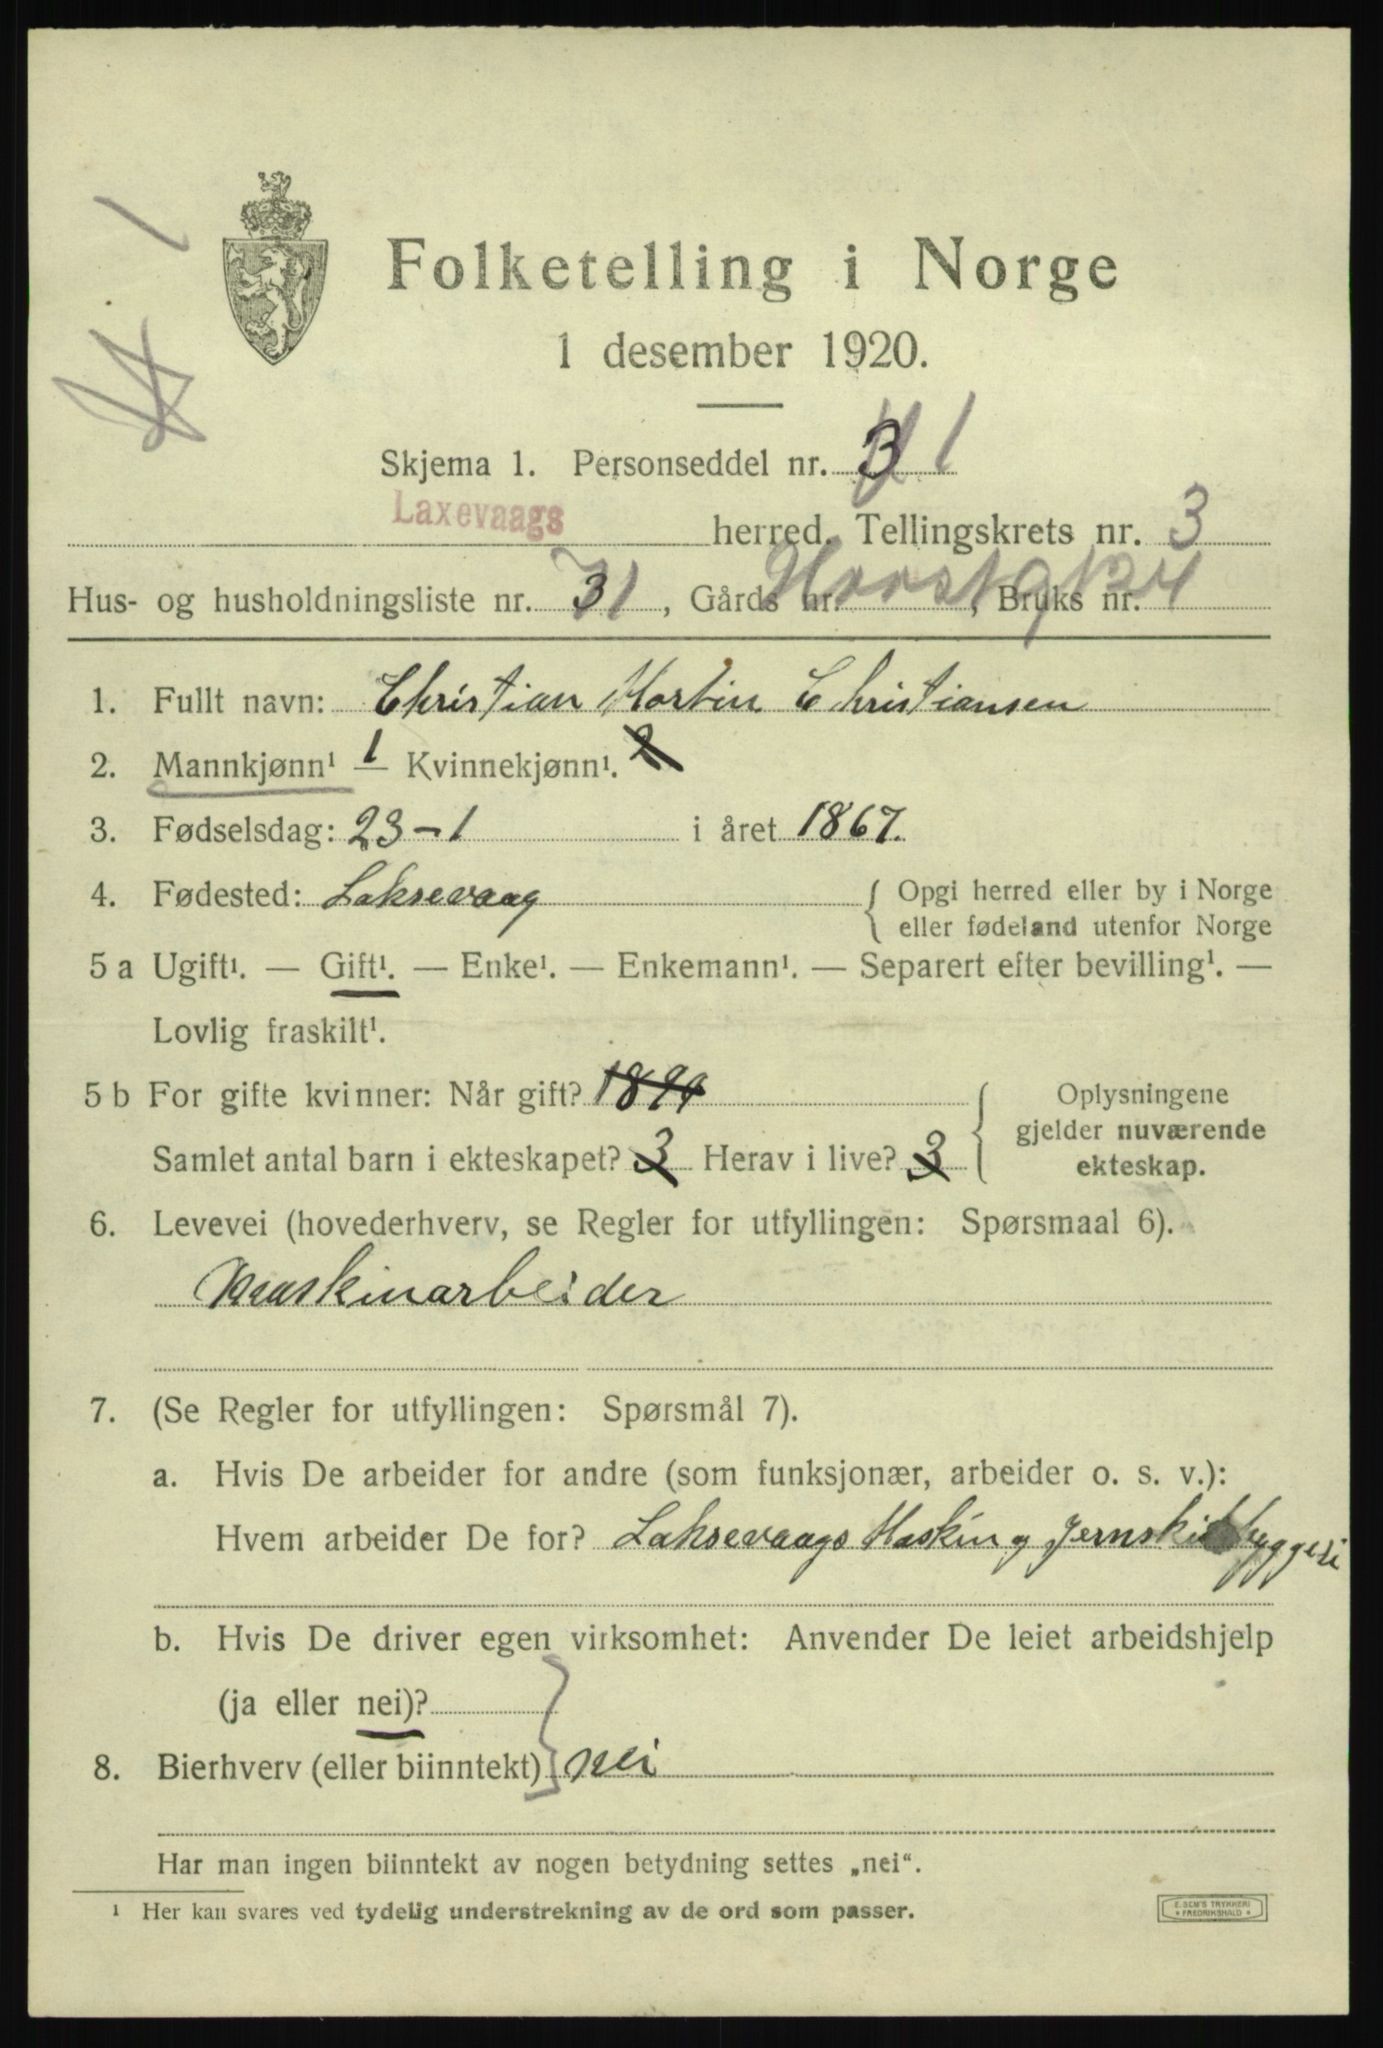 Folketelling i Norge
1 desember 1920.
Skjema 1. Personseddel nr. 3 1
Laxevaags herred. Tellingskrets nr. 3
Hus- og husholdningsliste nr. 31, Gårds nr. , Bruks nr.
1. Fullt navn: Christian Martin Christiansen
2. Mannkjønn¹ 1 — Kvinnekjønn¹. 2
3. Fødselsdag: 23-1 i året 1867.
4. Fødested: Laksevaag { Opgi herred eller by i Norge
eller fødeland utenfor Norge
5 a Ugift¹. — Gift¹. — Enke¹. — Enkemann¹. — Separert efter bevilling¹. —
Lovlig fraskilt¹.
5 b For gifte kvinner: Når gift? 1894
Samlet antal barn i ekteskapet? 3 Herav i live? 3
{ Oplysningene
gjelder nuværende
ekteskap.
6. Levevei (hovederhverv, se Regler for utfyllingen: Spørsmaal 6).
Maskinarbeider
7. (Se Regler for utfyllingen: Spørsmål 7).
a. Hvis De arbeider for andre (som funksjonær, arbeider o. s. v.):
Hvem arbeider De for? Laksevaags Maskin og Jernskibbyggeri
b. Hvis De driver egen virksomhet: Anvender De leiet arbeidshjelp
(ja eller nei)?
8. Bierhverv (eller biinntekt) } nei
Har man ingen biinntekt av nogen betydning settes „nei“.
¹ Her kan svares ved tydelig understrekning av de ord som passer.
E. SEM'S TRYKKERI
* FREDRIKSHALD *